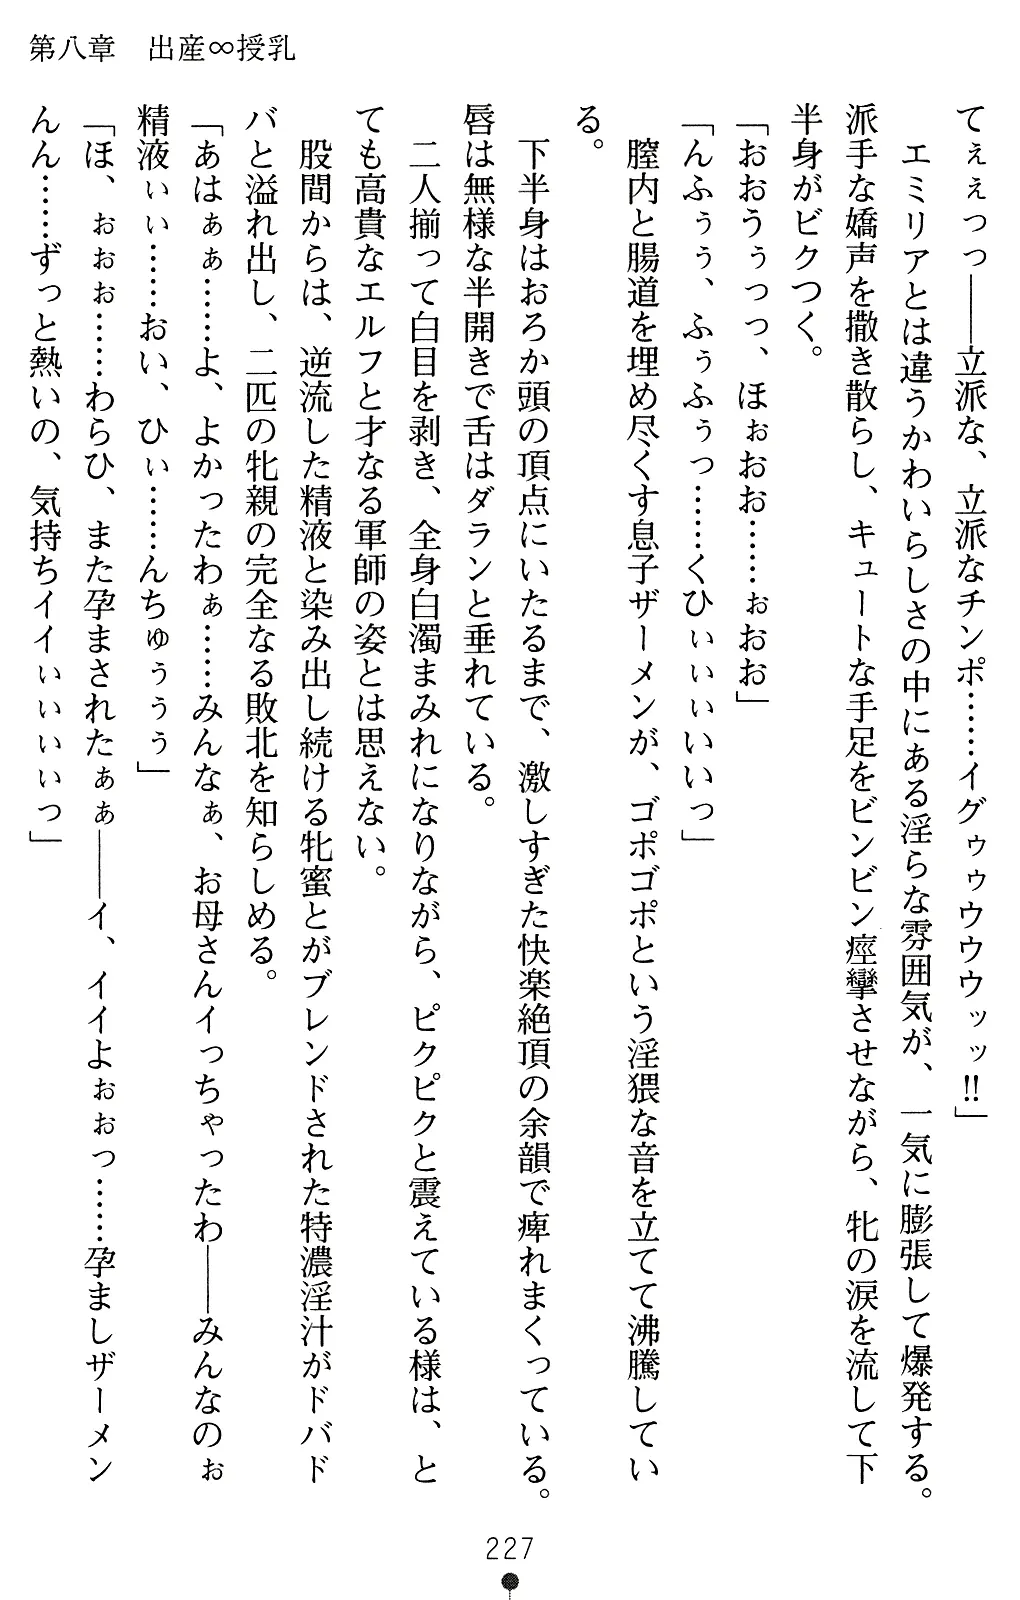 第八章　出産∞授乳
てぇぇっっ――立派な、立派なチンポ……イグゥゥウウウッッ!!」
エミリアとは違うかわいらしさの中にある淫らな雰囲気が、一気に膨張して爆発する。
派手な嬌声を撒き散らし、キュートな手足をビンビン痙攣させながら、牝の涙を流して下
半身がビクつく。
「おおうぅっっ、ほぉおお……ぉおお」
「んふぅぅ、ふぅふぅっ……くひぃぃぃいいっ」
膣内と腸道を埋め尽くす息子ザーメンが、ゴポゴポという淫猥な音を立てて沸騰してい
る。
下半身はおろか頭の頂点にいたるまで、激しすぎた快楽絶頂の余韻で痺れまくっている。
唇は無様な半開きで舌はダランと垂れている。
二人揃って白目を剥き、全身白濁まみれになりながら、ピクピクと震えている様は、と
ても高貴なエルフと才なる軍師の姿とは思えない。
股間からは、逆流した精液と染み出し続ける牝蜜とがブレンドされた特濃淫汁がドバド
バと溢れ出し、二匹の牝親の完全なる敗北を知らしめる。
「あはぁぁ……よ、よかったわぁ……みんなぁ、お母さんイっちゃったわ――みんなのぉ
精液ぃぃ……おい、ひぃ……んちゅぅぅぅ」
「ほ、ぉぉぉ……わらひ、また孕まされたぁぁ――イ、イイよぉぉっ……孕ましザーメン
んん……ずっと熱いの、気持ちイイぃぃぃぃっ」
227